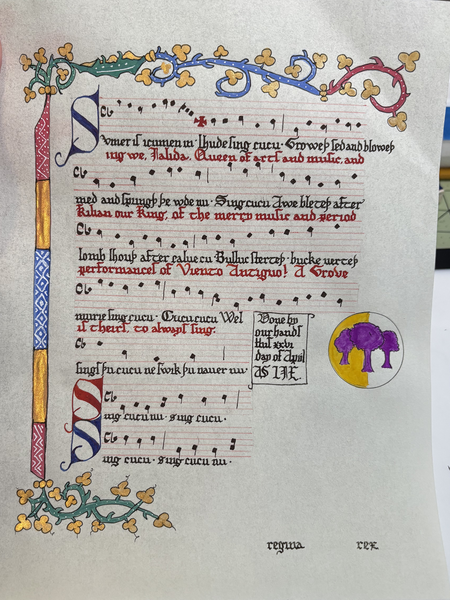 Svmer is icumen in · lhude sing cucu · Groweþ sed and bloweþ
ing we, Jalida, Queen of arts and music, and
med and springþ þe wde nu · Sing cucu Awe bleteþ after
Kilian our King, of the merry music and period
lomb lhouþ after calue cu Bulluc sterteþ · bucke uerteþ
performances of Viento Antiguo! A Grove
murie sing cucu · Cucu cucu Wel
is theirs, to always sing:
singes þu cucu ne swik þu nauer nu
Sing cucu nu · sing cucu ·
ing cucu · sing cucu nu ·
Done by
our hands
this xxvi
day of April
AS LIX
regina rex